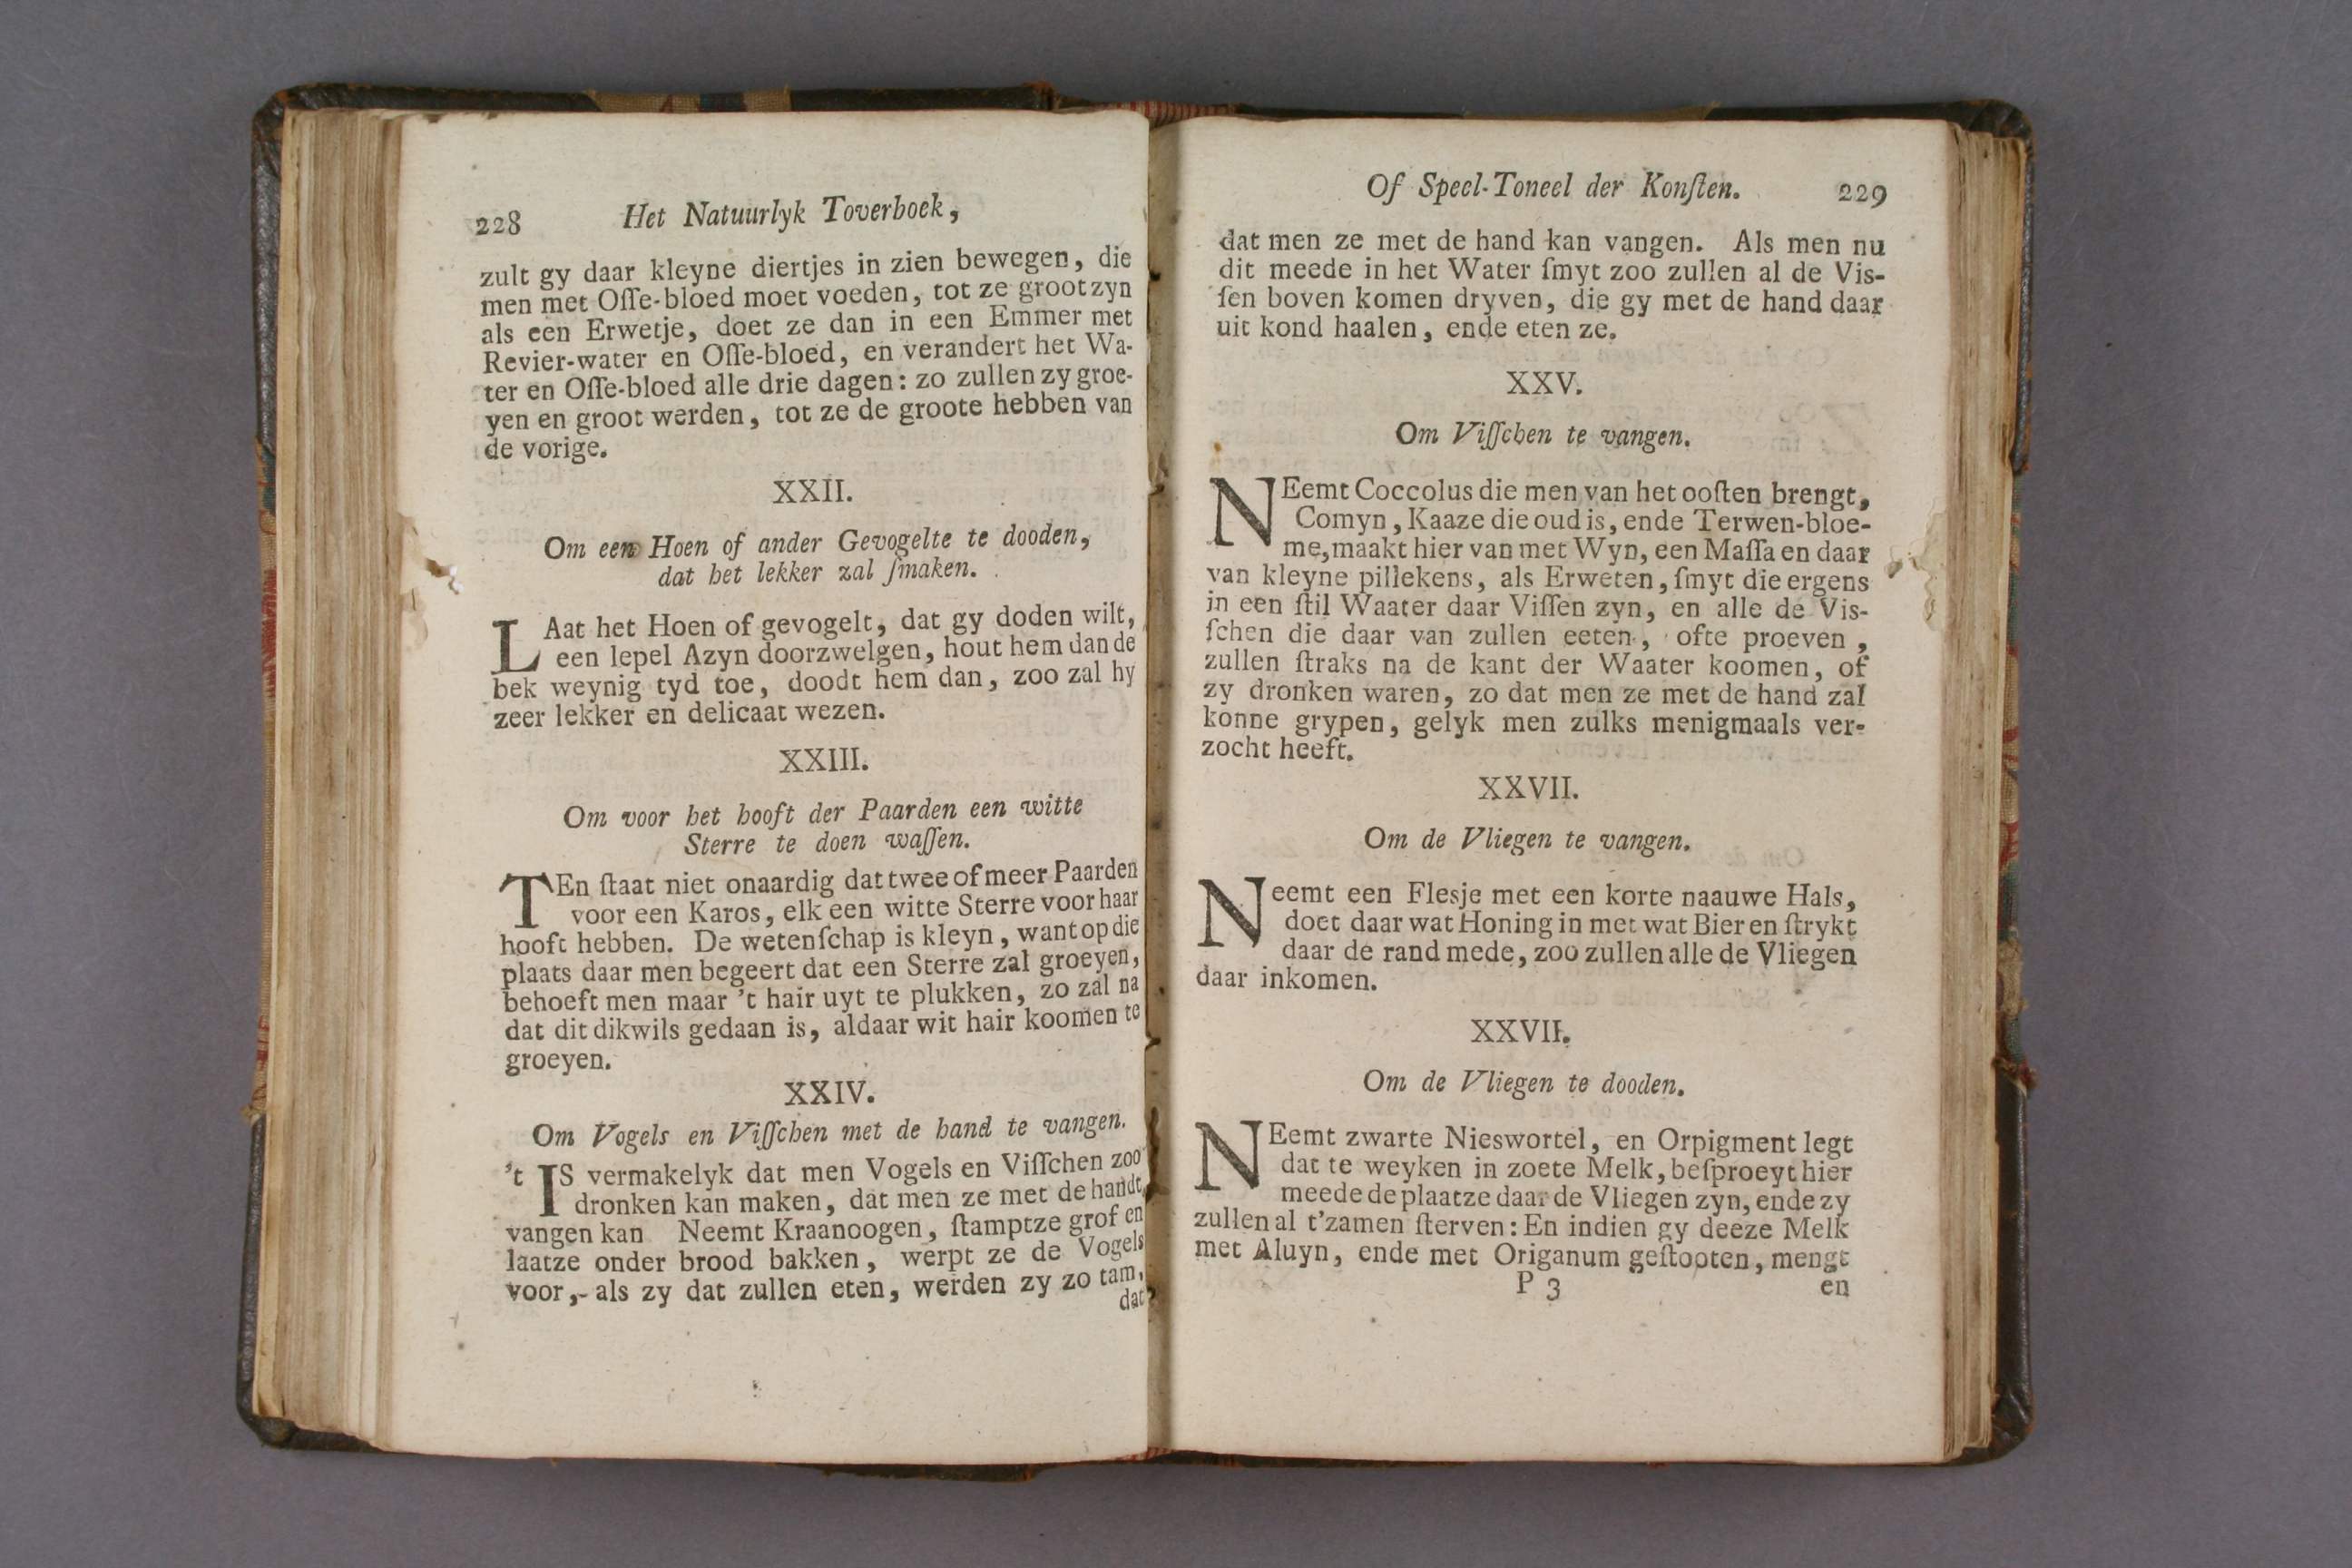 228 Het Natuurlyk Toverboek,
zult gy daar kleyne diertjes in zien bewegen, die
men met Oſſe-bloed moet voeden, tot ze groot zyn
als een Erwetje, doet ze dan in een Emmer met
Revier-water en Oſſe-bloed, en verandert het Wa-
ter en Oſſe-bloed alle drie dagen: zo zullen zy groe-
yen en groot werden, tot ze de groote hebben van
de vorige.
XXII.
Om een Hoen of ander Gevogelte te dooden,
dat het lekker zal ſmaken.
LAat het Hoen of gevogelt, dat gy doden wilt,
een lepel Azyn doorzwelgen, hout hem dan de
bek weynig tyd toe, doodt hem dan, zoo zal hy
zeer lekker en delicaat wezen.
XXIII.
Om voor het hooft der Paarden een witte
Sterre te doen waſſen.
TEn ſtaat niet onaardig dat twee of meer Paarden
voor een Karos, elk een witte Sterre voor haar
hooft hebben. De wetenſchap is kleyn, want op die
plaats daar men begeert dat een Sterre zal groeyen,
behoeft men maar 't hair uyt te plukken, zo zal na
dat dit dikwils gedaan is, aldaar wit hair koomen te
groeyen.
XXIV.
Om Vogels en Viſſchen met de hand te vangen.
't IS vermakelyk dat men Vogels en Viſſchen zoo
dronken kan maken, dat men ze met de handt
vangen kan Neemt Kraanoogen, ſtamptze grof en
laatze onder brood bakken, werpt ze de Vogels
voor,- als zy dat zullen eten, werden zy zo tam,
dat
Of Speel-Toneel der Konſten. 229
dat men ze met de hand kan vangen. Als men nu
dit meede in het Water ſmyt zoo zullen al de Vis-
ſen boven komen dryven, die gy met de hand daar
uit kond haalen, ende eten ze.
XXV.
Om Viſſchen te vangen.
NEemt Coccolus die men van het ooſten brengt,
Comyn, Kaaze die oud is, ende Terwen-bloe-
me, maakt hier van met Wyn, een Maſſa en daar
van kleyne pillekens, als Erweten, ſmyt die ergens
in een ſtil Waater daar Viſſen zyn, en alle de Vis-
ſchen die daar van zullen eeten, ofte proeven,
zullen ſtraks na de kant der Waater koomen, of
zy dronken waren, zo dat men ze met de hand zal
konne grypen, gelyk men zulks menigmaals ver-
zocht heeft.
XXVII.
Om de Vliegen te vangen.
Neemt een Flesje met een korte naauwe Hals,
doet daar wat Honing in met wat Bier en ſtrykt
daar de rand mede, zoo zullen alle de Vliegen
daar inkomen.
XXVII.
Om de Vliegen te dooden.
NEemt zwarte Nieswortel, en Orpigment legt
dat te weyken in zoete Melk, beſproeyt hier
meede de plaatze daar de Vliegen zyn, ende zy
zullen al t'zamen ſterven: En indien gy deeze Melk
met Aluyn, ende met Origanum geſtooten, mengt
P 3 en